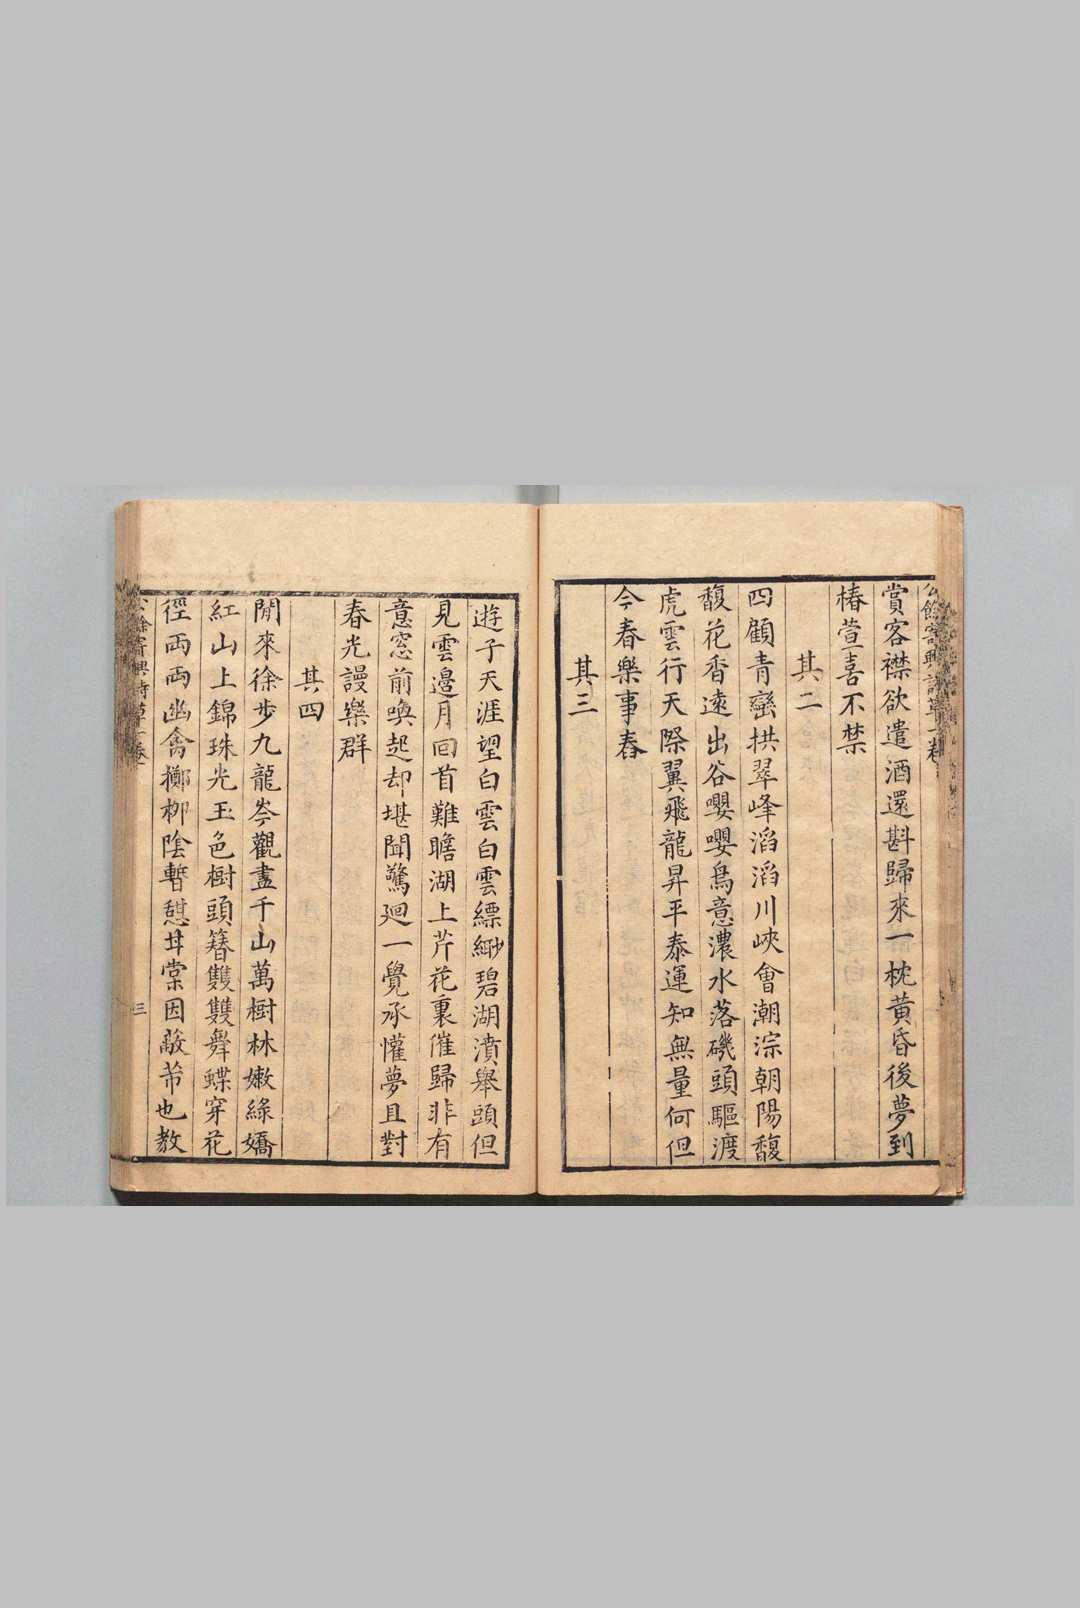 公餘寄興詩草一卷
賞客襟欲遣酒還斟歸來一枕黃昏後夢到
椿萱喜不禁
其二
四顧青巒拱翠峰滔滔川峽會潮淙朝陽馥
馥花香遠出谷嚶嚶鳥意濃水落磯頭驅渡
虎雲行天際翼飛龍昇平泰運知無量何但
今春樂事舂
其三
遊子天涯望白雲白雲縹緲碧湖濆舉頭但
見雲邊月回首難瞻湖上芹花裏催歸非有
意窓前喚起却堪聞驚廻一覺承懽夢且對
春光謾樂群
其四
閒來徐步九龍岑觀盡千山萬樹林嫩綠嬌
紅山上錦珠光玉色樹頭簪雙雙舞蝶穿花
徑両両幽禽擲柳陰暫憇甘棠因蔽芾也教
公餘寄興詩草一卷
三